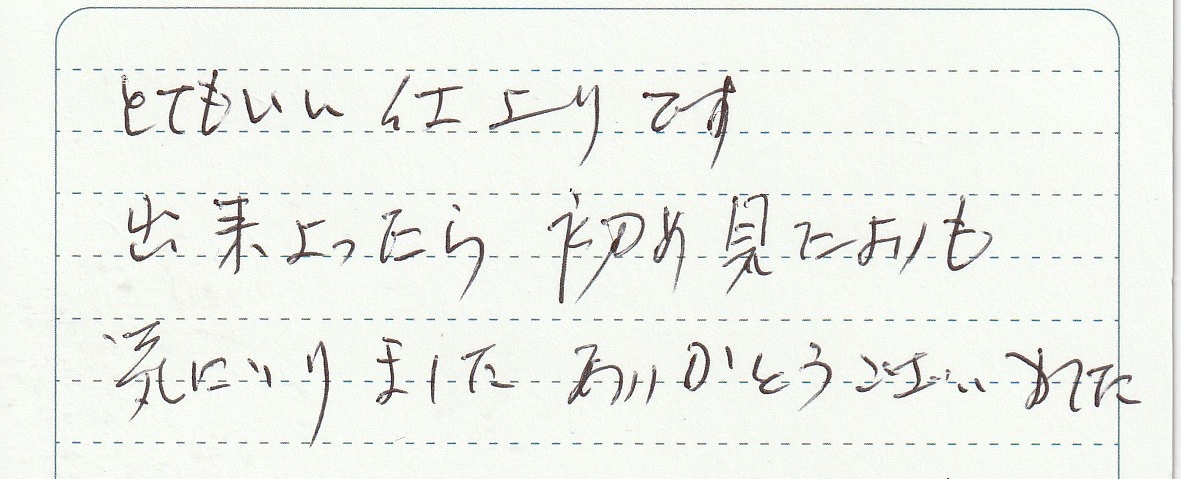 とてもいい仕上りです
出来上ったら初め見たよりも
気に入りました ありがとうございました